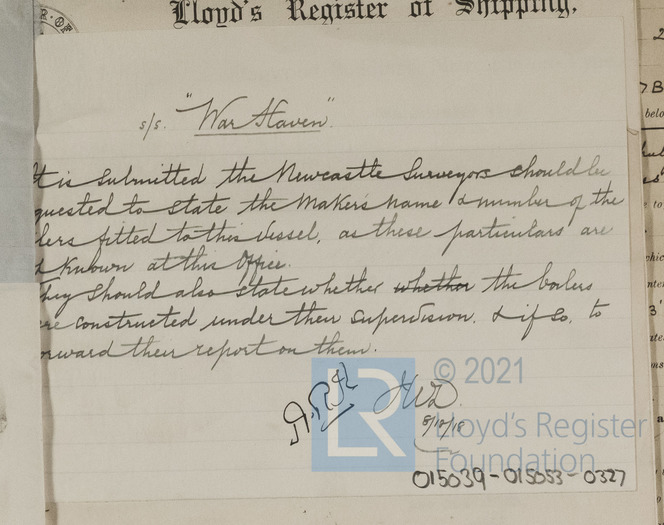 Lloyd's Register of Shipping.
s/s. "War Haven".
It is submitted the Newcastle Surveyors should be
quested to state the Makers name & number of the
lers fitted to this vessel, as these particulars are
t known at this Office.
They should also state whether whether the boilers
ere constructed under their supervision. & if so, to
orward their report on them.
8/10/18
LR
© 2021
Lloyd's Register
Foundation
015039-015053-0327